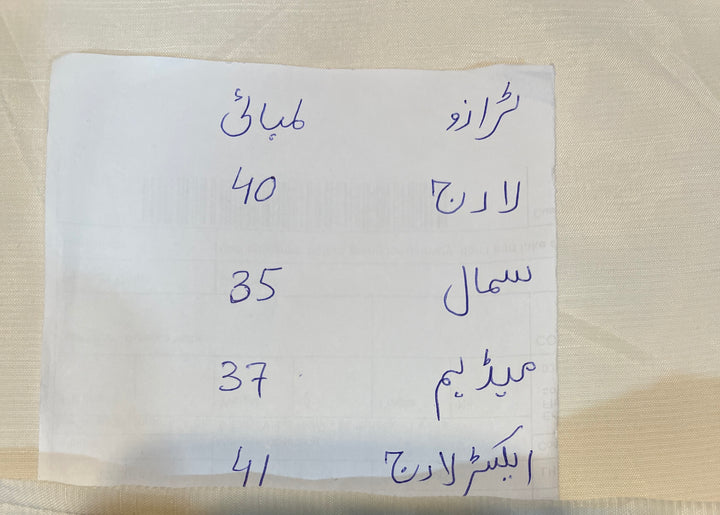 ٹرازو لمبائی
لارج 40
سمال 35
میڈیم 37
ایکسٹرلارج 41